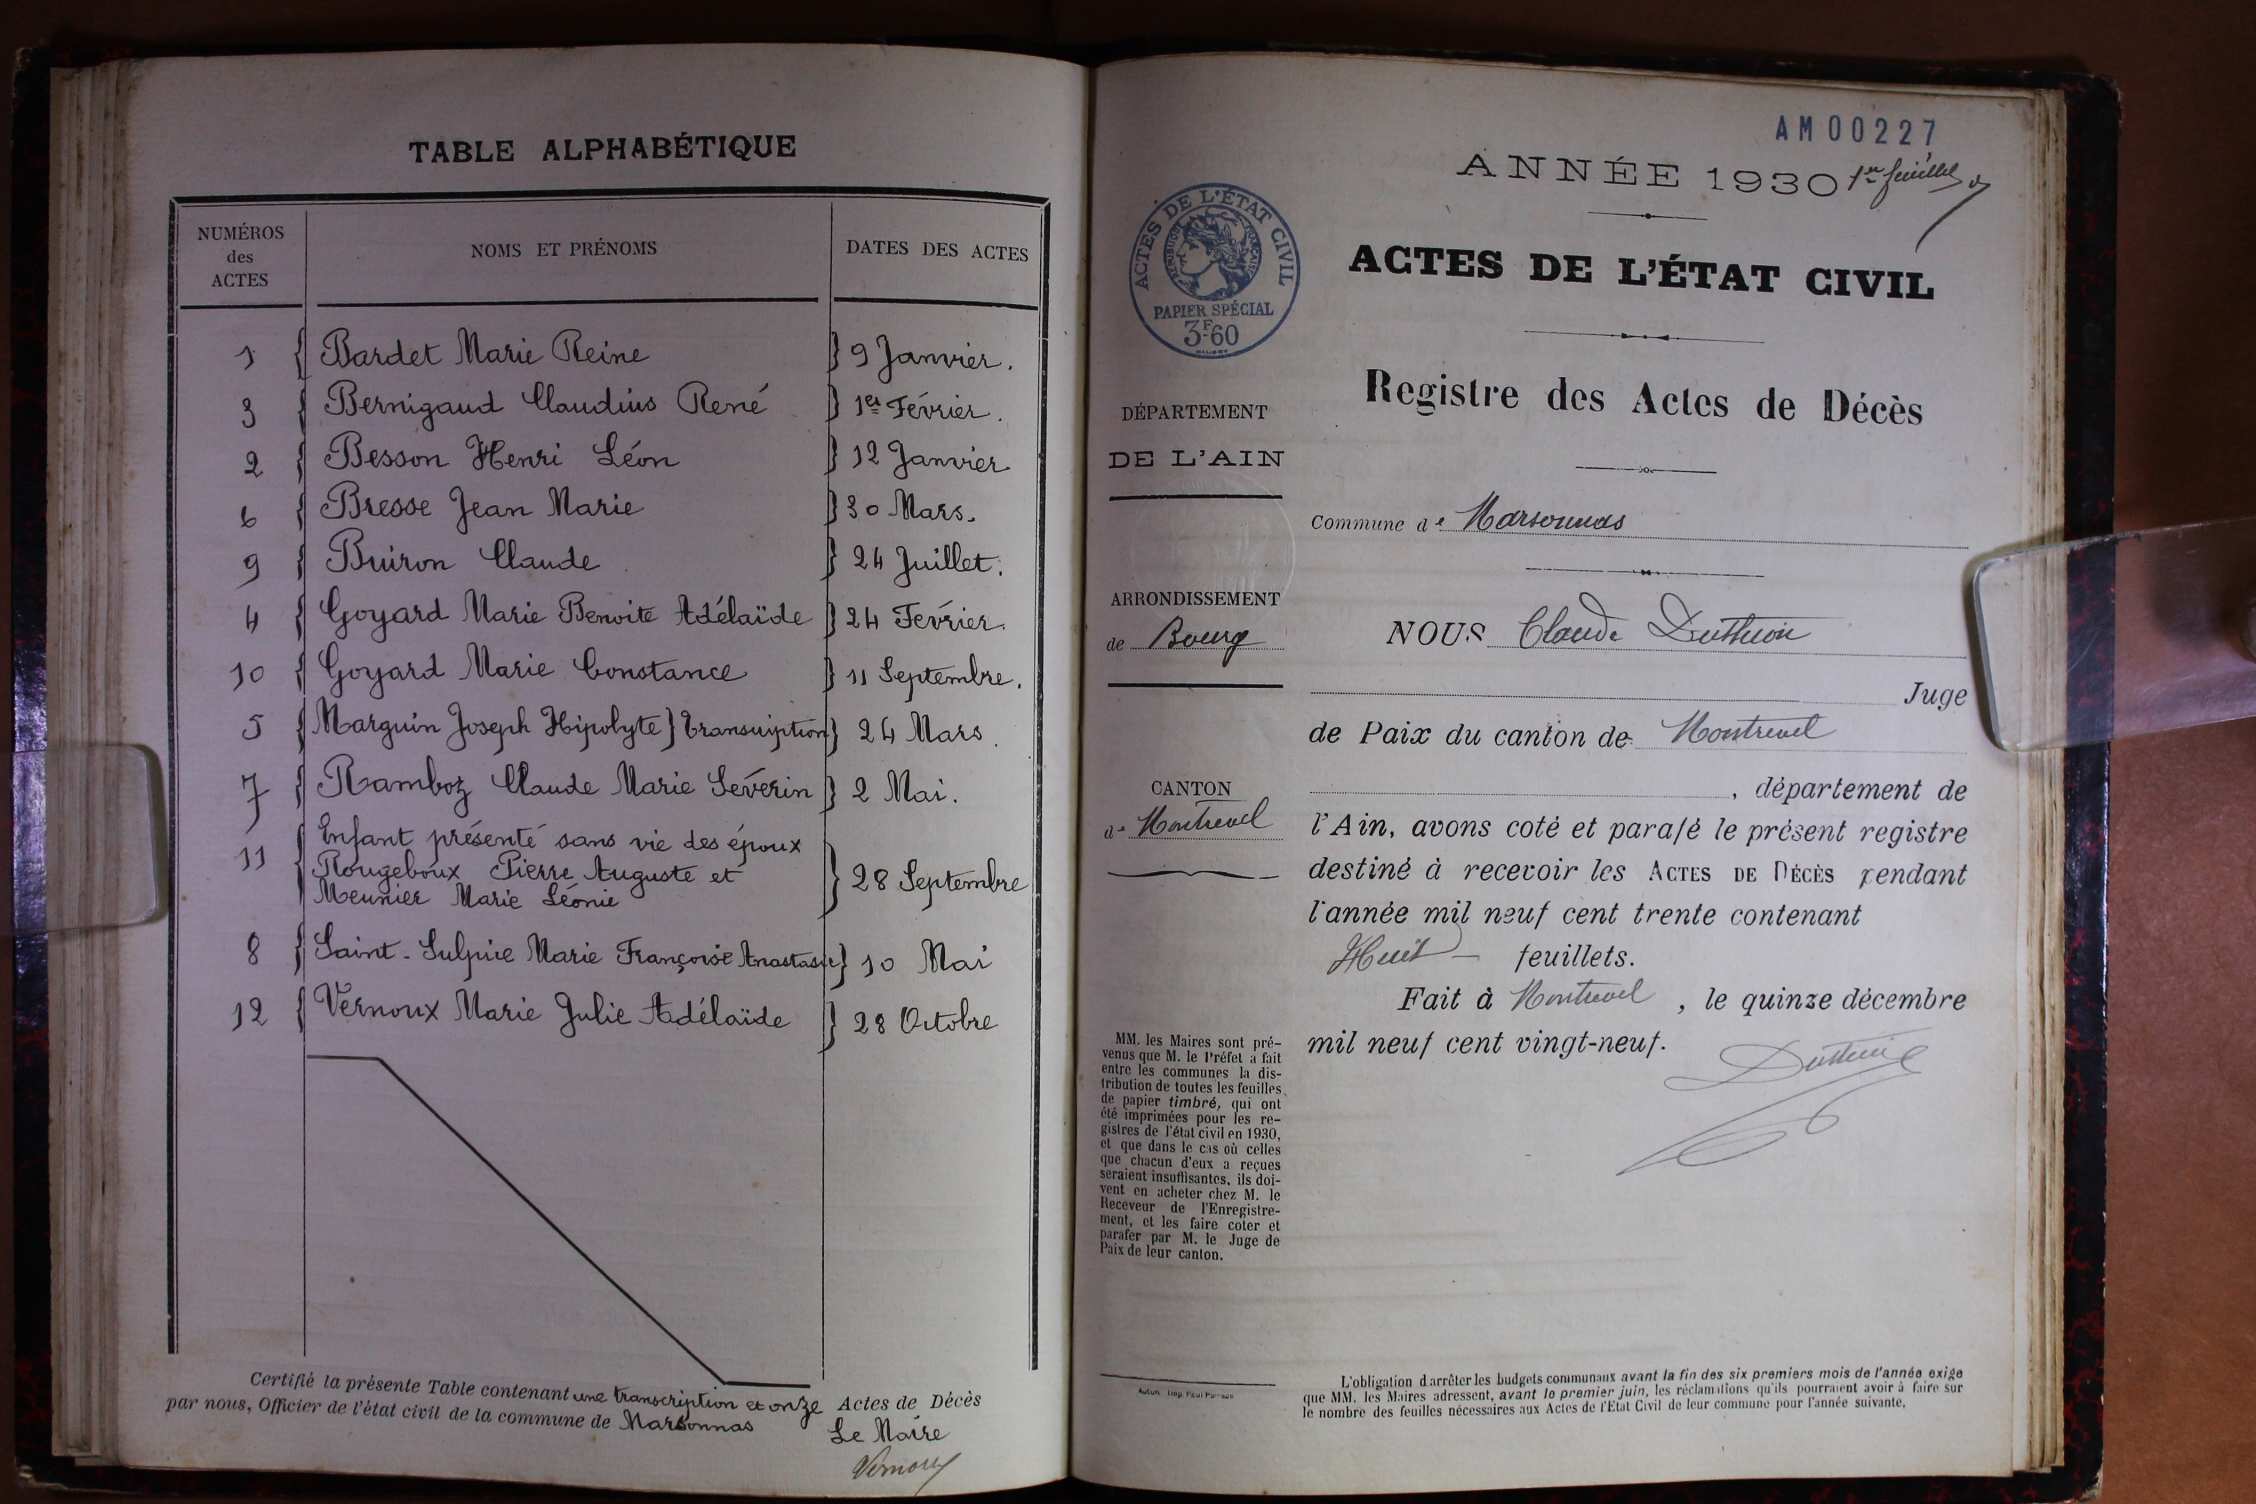 TABLE ALPHABÉTIQUE
NUMÉROS des ACTES
NOMS ET PRÉNOMS
DATES DES ACTES
1 { Bardet Marie Reine } 9 Janvier.
3 { Bernigaud Claudius René } 1er Février.
2 { Besson Henri Léon } 12 Janvier
6 { Bresse Jean Marie } 30 Mars.
9 { Buiron Claude } 24 Juillet.
4 { Goyard Marie Benoite Adélaïde } 24 Février.
10 { Goyard Marie Constance } 11 Septembre.
5 { Marguin Joseph Hipolyte } transcription } 24 Mars.
7 { Ramboz Claude Marie Séverin } 2 Mai.
11 { Enfant présenté sans vie des époux
Rougeboux Pierre Auguste et
Meunier Marie Léonie } 28 Septembre
8 { Saint-Sulpice Marie Françoise Anastasie } 10 Mai
12 { Vernoux Marie Julie Adélaïde } 28 Octobre
Certifié la présente Table contenant une transcription et onze Actes de Décès
par nous, Officier de l'état civil de la commune de Marsonnas
Le Maire
Vernoux
AM 00227
ANNÉE 1930 1er feuillet
ACTES DE L'ÉTAT CIVIL
RÉPUBLIQUE FRANÇAISE
PAPIER SPÉCIAL
3F60
ACTES DE L'ÉTAT CIVIL
Registre des Actes de Décès
DÉPARTEMENT
DE L'AIN
ARRONDISSEMENT
de Bourg
CANTON
de Montrevel
MM. les Maires sont pré-
venus que M. le Préfet a fait
entre les communes la dis-
tribution de toutes les feuilles
de papier timbré, qui ont
été imprimées pour les re-
gistres de l'état civil en 1930,
et que dans le cas où celles
que chacun d'eux a reçues
seraient insuffisantes, ils doi-
vent en acheter chez M. le
Receveur de l'Enregistre-
ment, et les faire coter et
parafer par M. le Juge de
Paix de leur canton.
Autun Imp. Paul
Commune de Marsonnas
NOUS Claude
Juge
de Paix du canton de Montrevel
, département de
l'Ain, avons coté et parafé le présent registre
destiné à recevoir les ACTES DE DÉCÈS pendant
l'année mil neuf cent trente contenant
Huit feuillets.
Fait à Montrevel , le quinze décembre
mil neuf cent vingt-neuf.
L'obligation d'arrêter les budgets communaux avant la fin des six premiers mois de l'année exige
que MM. les Maires adressent, avant le premier juin, les réclamations qu'ils pourraient avoir à faire sur
le nombre des feuilles nécessaires aux Actes de l'Etat Civil de leur commune pour l'année suivante.